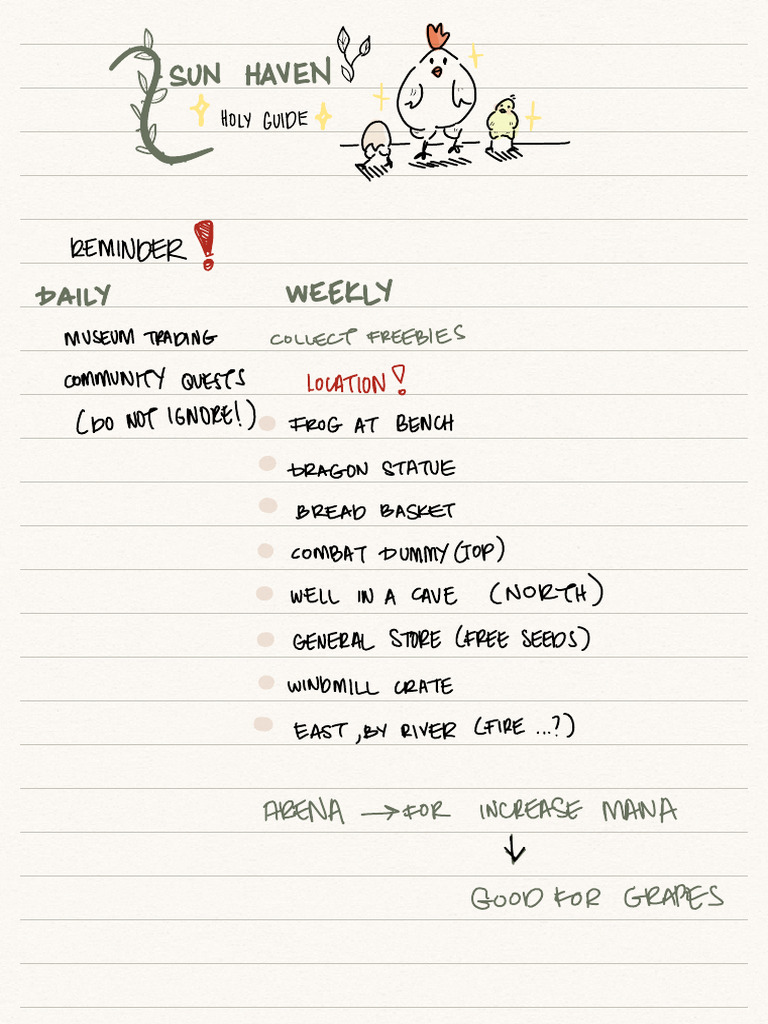 SUN HAVEN
HOLY GUIDE
REMINDER!
DAILY
MUSEUM TRADING
COMMUNITY QUESTS
(DO NOT IGNORE!)
WEEKLY
COLLECT FREEBIES
LOCATION!
FROG AT BENCH
DRAGON STATUE
BREAD BASKET
COMBAT DUMMY (TOP)
WELL IN A CAVE (NORTH)
GENERAL STORE (FREE SEEDS)
WINDMILL CRATE
EAST, BY RIVER (FIRE ...?)
ARENA → FOR INCREASE MANA
↓
GOOD FOR GRAPES